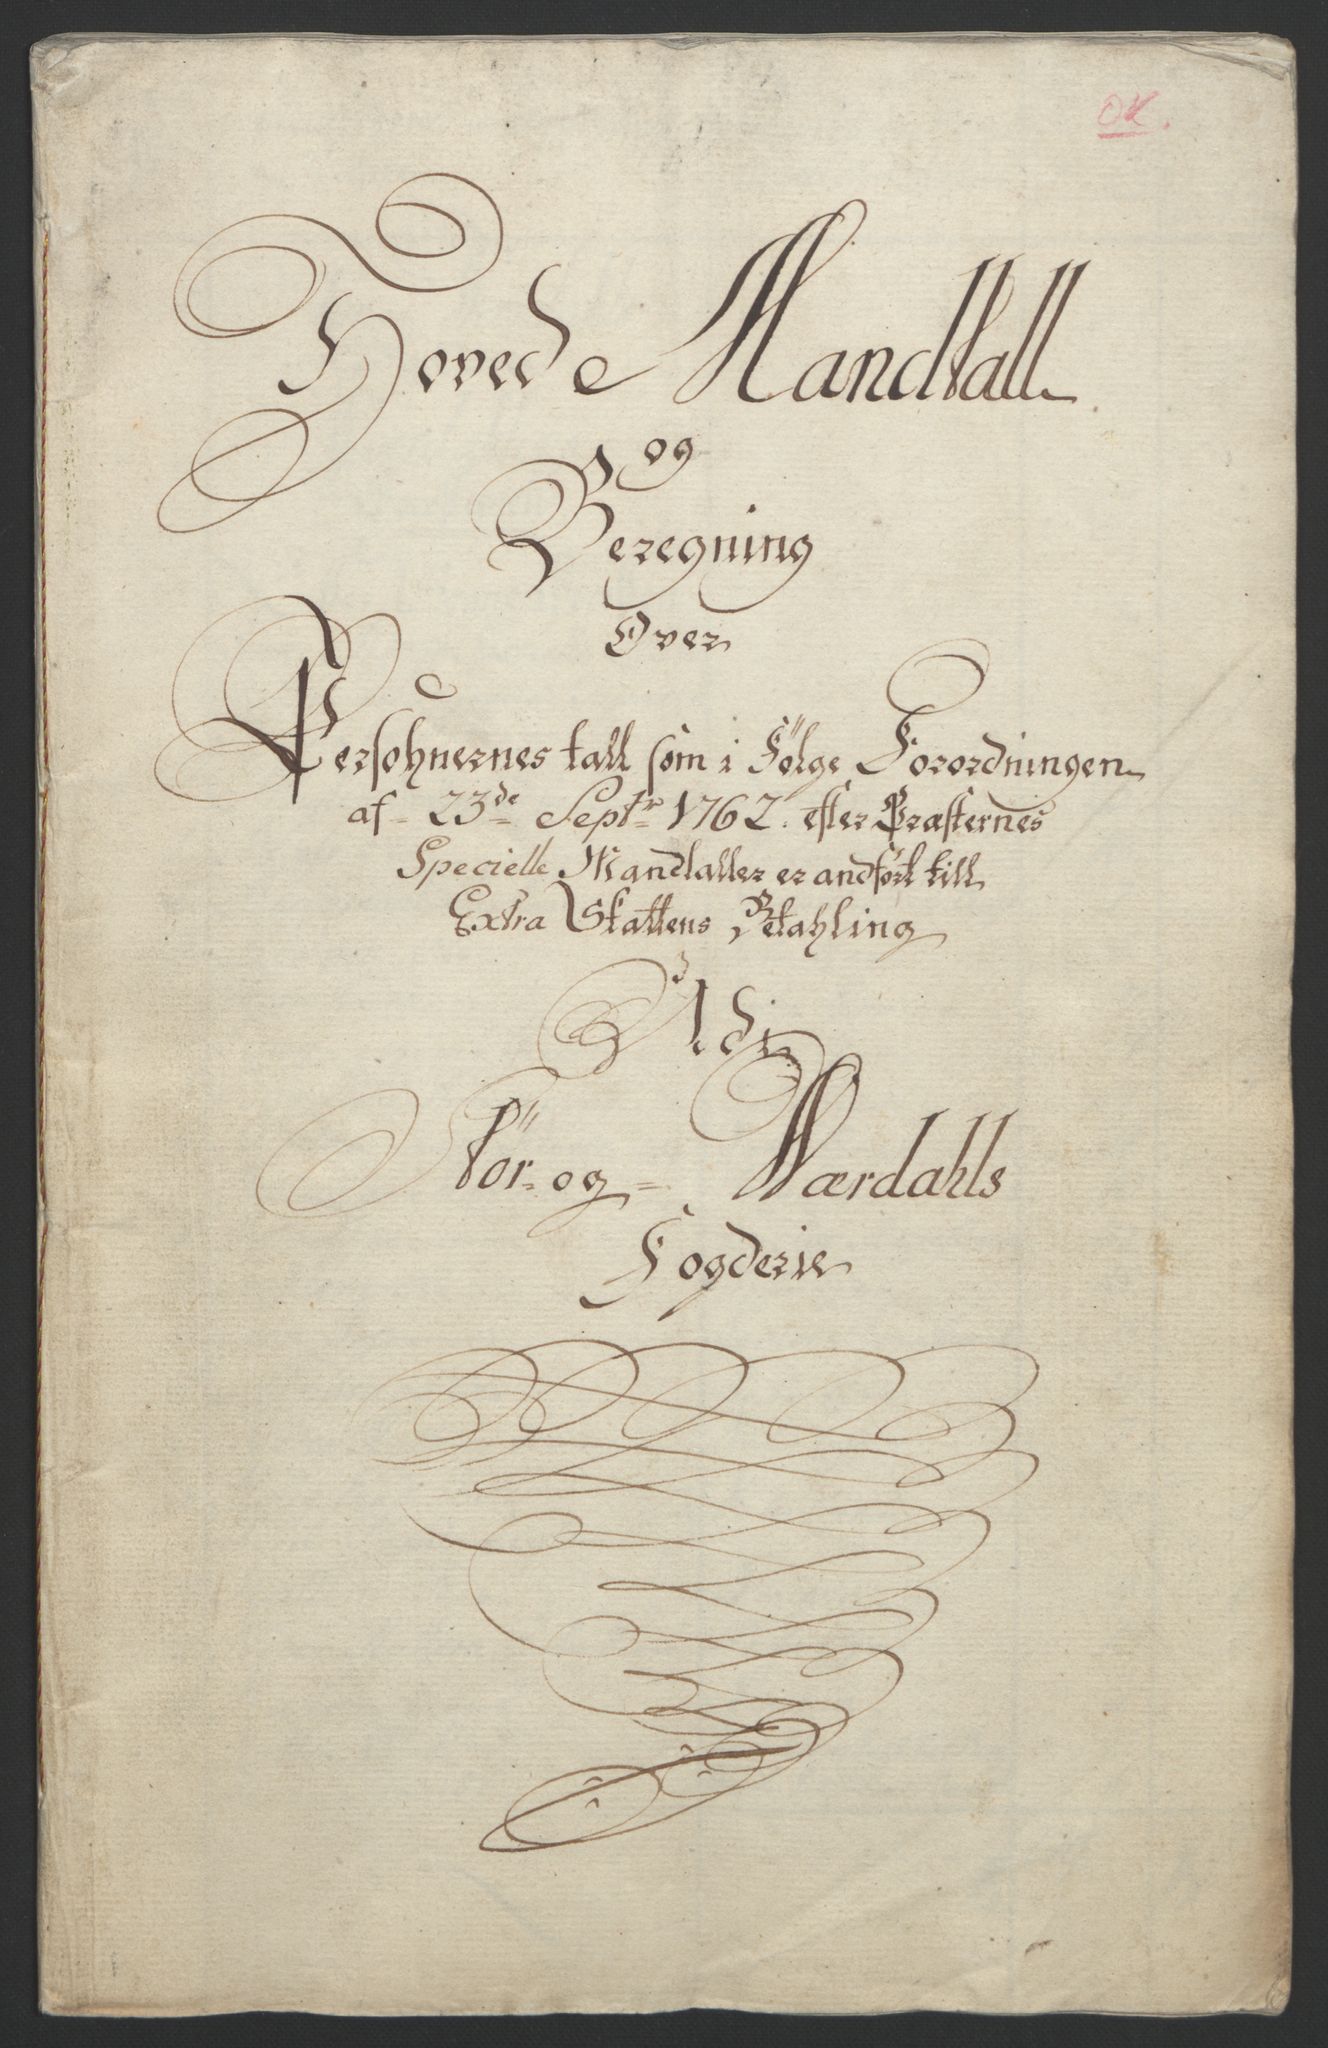 OK.
Hovede Mandtall
og
Beregning
Over
Persohnernes tall som i Fölge Forordningen
af 23de Septr 1762. efter Præsternes
Specielle Mandtaller er andfört till
Extra Skattens Betahling
Udi
Stör- og Værdahls
Fogderie